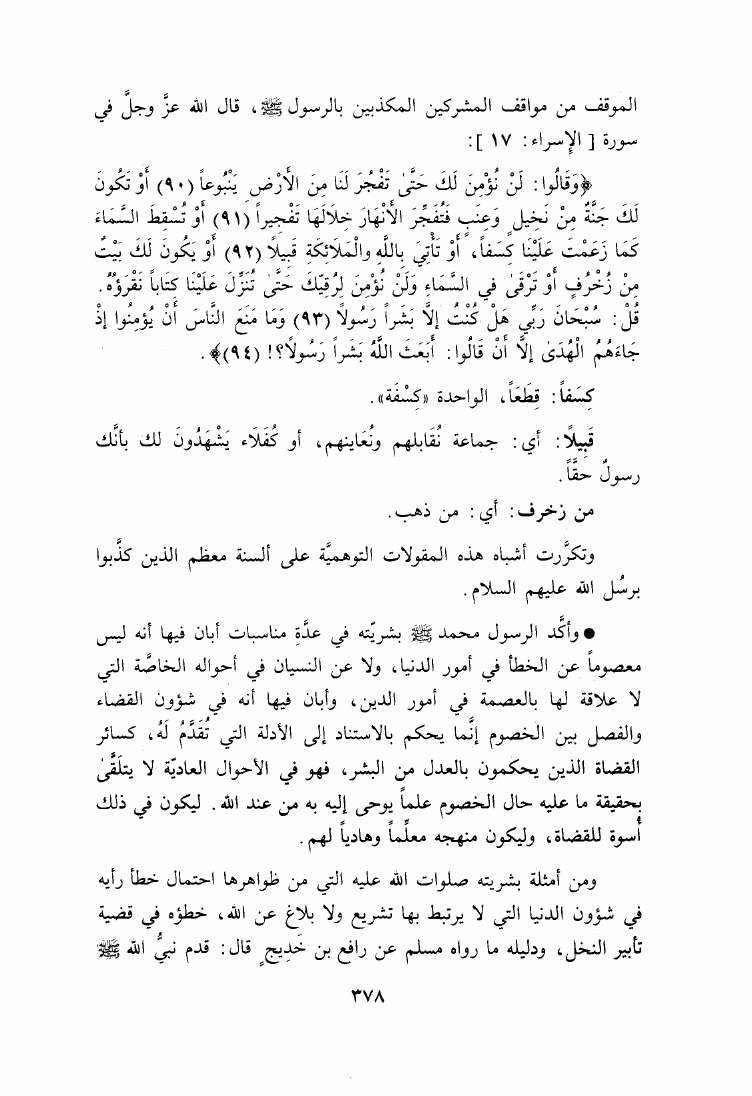 الموقف من مواقف المشركين المكذبين بالرسول ﷺ، قال الله عزَّ وجلَّ في
سورة [ الإسراء: ١٧ ]:
﴿وَقَالُوا: لَنْ نُؤْمِنَ لَكَ حَتَّىٰ تَفْجُرَ لَنَا مِنَ الْأَرْضِ يَنْبُوعاً (٩٠) أَوْ تَكُونَ
لَكَ جَنَّةٌ مِنْ نَخِيلٍ وَعِنَبٍ فَتُفَجِّرَ الْأَنْهَارَ خِلَالَهَا تَفْجِيراً (٩١) أَوْ تُسْقِطَ السَّمَاءَ
كَمَا زَعَمْتَ عَلَيْنَا كِسَفاً، أَوْ تَأْتِيَ بِاللَّهِ وَالْمَلَائِكَةِ قَبِيلًا (٩٢) أَوْ يَكُونَ لَكَ بَيْتٌ
مِنْ زُخْرُفٍ أَوْ تَرْقَىٰ في السَّمَاءِ وَلَنْ نُؤْمِنَ لِرُقِيِّكَ حَتَّى تُنَزِّلَ عَلَيْنَا كِتَاباً نَقْرَؤُهُ.
قُلْ: سُبْحَانَ رَبِّي هَلْ كُنْتُ إِلَّا بَشَراً رَسُولًا (٩٣) وَمَا مَنَعَ النَّاسَ أَنْ يُؤْمِنُوا إِذْ
جَاءَهُمُ الْهُدَىٰ إِلَّا أَنْ قَالُوا: أَبَعَثَ اللَّهُ بَشَراً رَسُولًا؟! (٩٤)﴾.
كِسَفاً: قِطَعَاً، الواحدة «كِسْفَة».
قَبِيلًا: أي: جماعة نُقَابلهم ونُعَاينهم، أو كُفَلَاء يَشْهَدُونَ لك بأنَّك
رسولٌ حقَّاً.
من زخرف: أي: من ذهب.
وتكرَّرت أشباه هذه المقولات التوهميَّة على ألسنة معظم الذين كذَّبوا
برسُل الله عليهم السلام.
● وأكَّد الرسول محمد ﷺ بشريّته في عدَّةِ مناسبات أبان فيها أنه ليس
معصوماً عن الخطأ في أمور الدنيا، ولا عن النسيان في أحواله الخاصَّة التي
لا علاقة لها بالعصمة في أمور الدين، وأبان فيها أنه في شؤون القضاء
والفصل بين الخصوم إنَّما يحكم بالاستناد إلى الأدلة التي تُقَدَّمُ لَهُ، كسائر
القضاة الذين يحكمون بالعدل من البشر، فهو في الأحوال العاديّة لا يتلقَّىٰ
بحقيقة ما عليه حال الخصوم علماً يوحى إليه به من عند الله. ليكون في ذلك
أُسوة للقضاة، وليكون منهجه معلِّماً وهادياً لهم.
ومن أمثلة بشريته صلوات الله عليه التي من ظواهرها احتمال خطأ رأيه
في شؤون الدنيا التي لا يرتبط بها تشريع ولا بلاغ عن الله، خطؤه في قضية
تأبير النخل، ودليله ما رواه مسلم عن رافع بن خَدِيجٍ قال: قدم نبيُّ الله ﷺ
٣٧٨